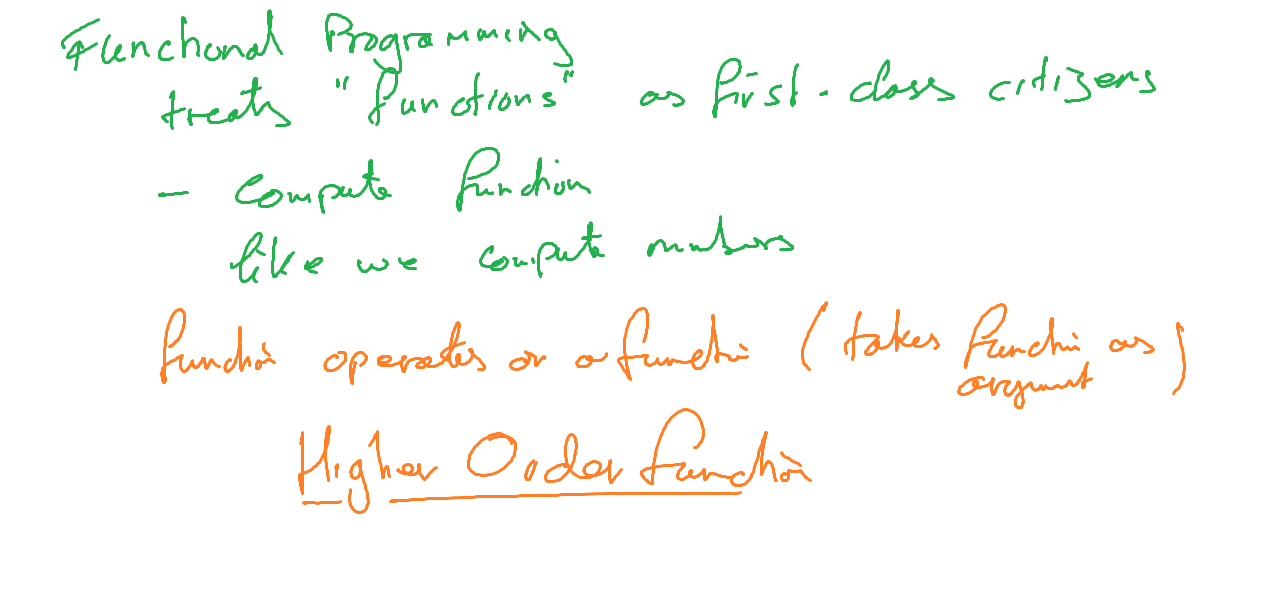 Functional Programming
treats "functions" as first-class citizens
- Compute function
like we compute numbers
function operates on a function (takes function as argument)
Higher Order function